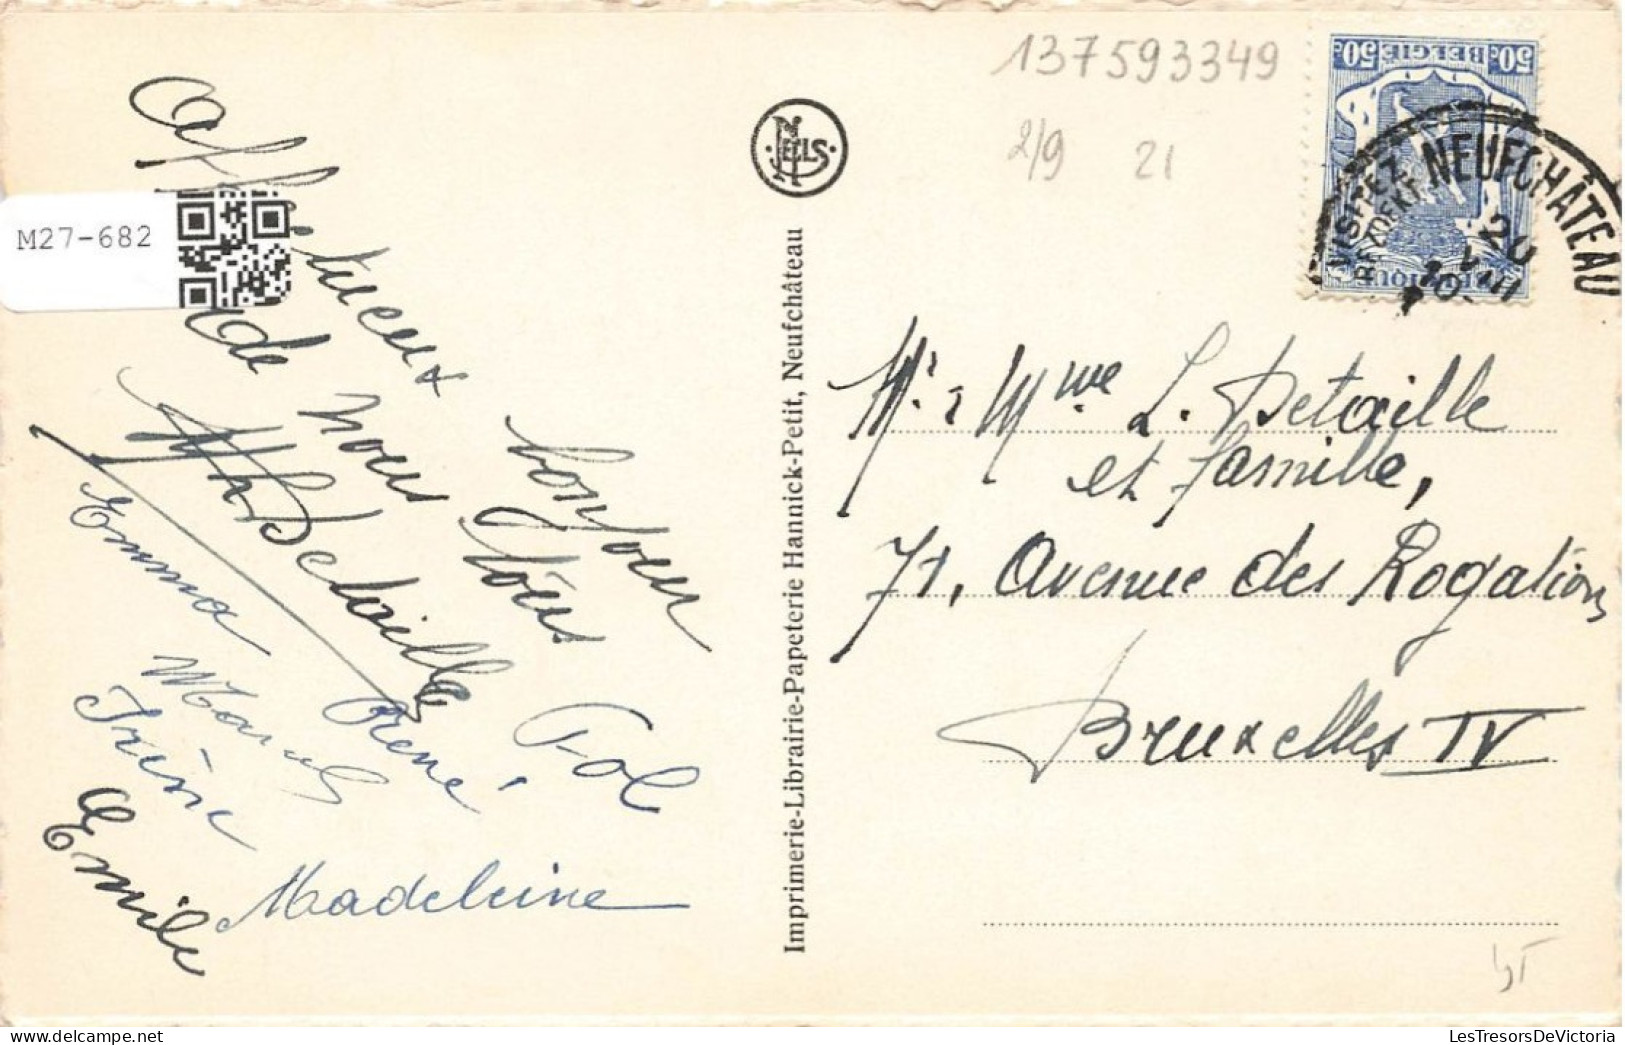 M27-682
Affectueux bonjour
de nous tous
Detaille
Emma
Marcel
René
Pol
Irène
Emile
Madeleine
NELS
Imprimerie-Librairie-Papeterie Hannick-Petit, Neufchâteau
137593349
2/9 21
50c BELGIE 50c
BELGIQUE
VISITEZ NEUFCHÂTEAU
BEZOEKT
20
VIII
Mr & Mme L. Detaille
et famille,
71, Avenue des Rogations
Bruxelles IV
LesTresorsDeVictoria.com